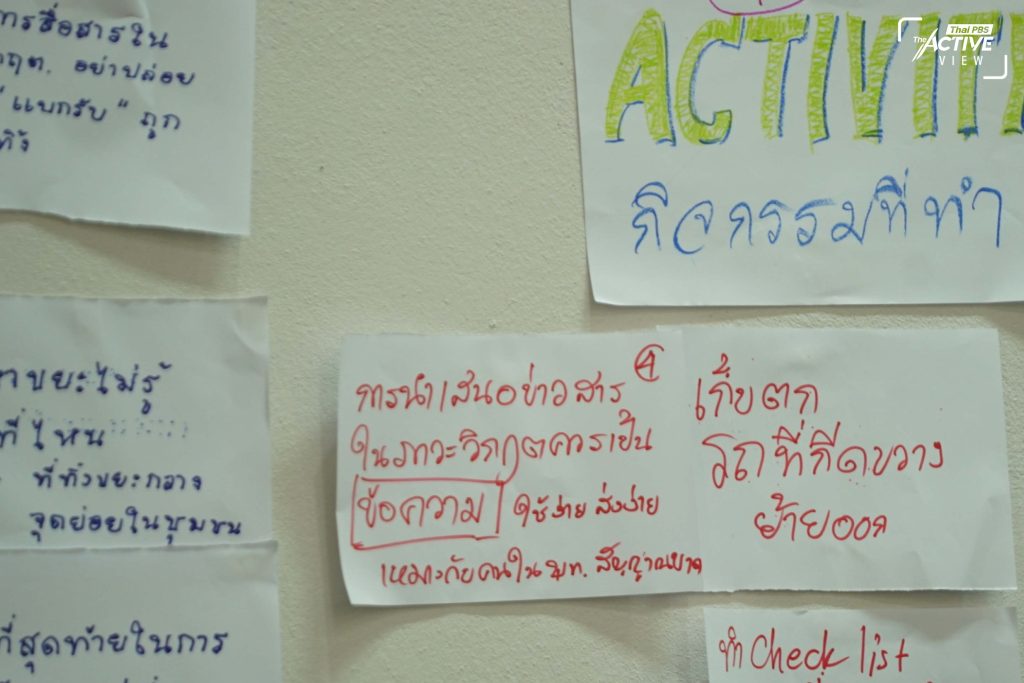 การสื่อสารใน
อย่าปล่อย
"แบกรับ" ถูก
ทิ้ง
ขยะไม่รู้
ที่ไหน
ที่ทิ้งขยะกลาง
จุดย่อยในชุมชน
ที่สุดท้ายในการ
ACTIVITI
กิจกรรมที่ทำ
Thai PBS
The ACTIVE
VIEW
การนำเสนอข่าวสาร ④
ในภาวะวิกฤตควรเป็น
ข้อความ ใช้ง่าย ส่งง่าย
เหมาะกับคนใน พท. สัญญาณขาด
เก็บตก
รถที่กีดขวาง
ย้ายออก
ทำ Check list